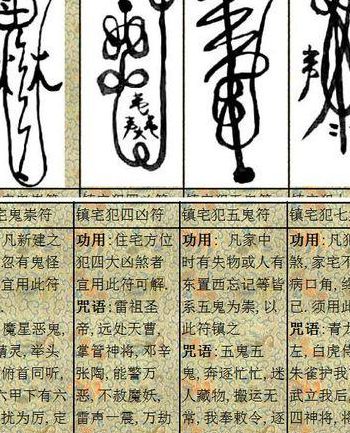 宅鬼祟符
凡新建之
忽有鬼怪
宜用此符
魔星恶鬼,
精灵, 举头
俯首同听,
六甲下有六
扰为厉, 定
镇宅犯四凶符
功用: 住宅方位
犯四大煞者
宜用此符可解.
咒语: 雷祖圣
帝, 远处天曹,
掌管神将, 邓辛
张陶, 能警万
恶, 不赦魔妖,
雷声一震, 万劫
镇宅犯五鬼符
功用: 凡家中
时有失物或人有
东置西忘记等皆
系五鬼为祟, 以
此符镇之
咒语: 五鬼五
鬼, 奔逐忙忙, 迷
人藏物, 搬运无
常, 我奉敕令, 逐
镇宅犯七
功用: 凡
煞, 家宅不
病口角, 终
已. 须用此
咒语: 青
左, 白虎侍
朱雀护我
武立我后,
四神将, 将